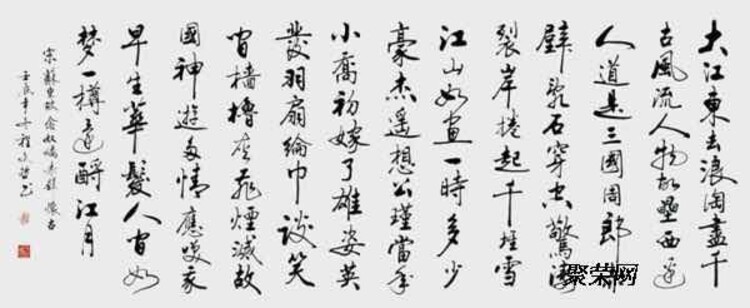 大江東去浪淘盡千
古風流人物故壘西邊
人道是三國周郎赤
壁亂石穿空驚濤
裂岸捲起千堆雪
江山如畫一時多少
豪杰遥想公瑾當年
小喬初嫁了雄姿英
發羽扇綸巾談笑
間檣櫓灰飛煙滅故
國神遊多情應笑我
早生華髮人間如
夢一樽還酹江月
宋蘇東坡念奴嬌赤壁懷古
壬辰年冬程
聚荣网